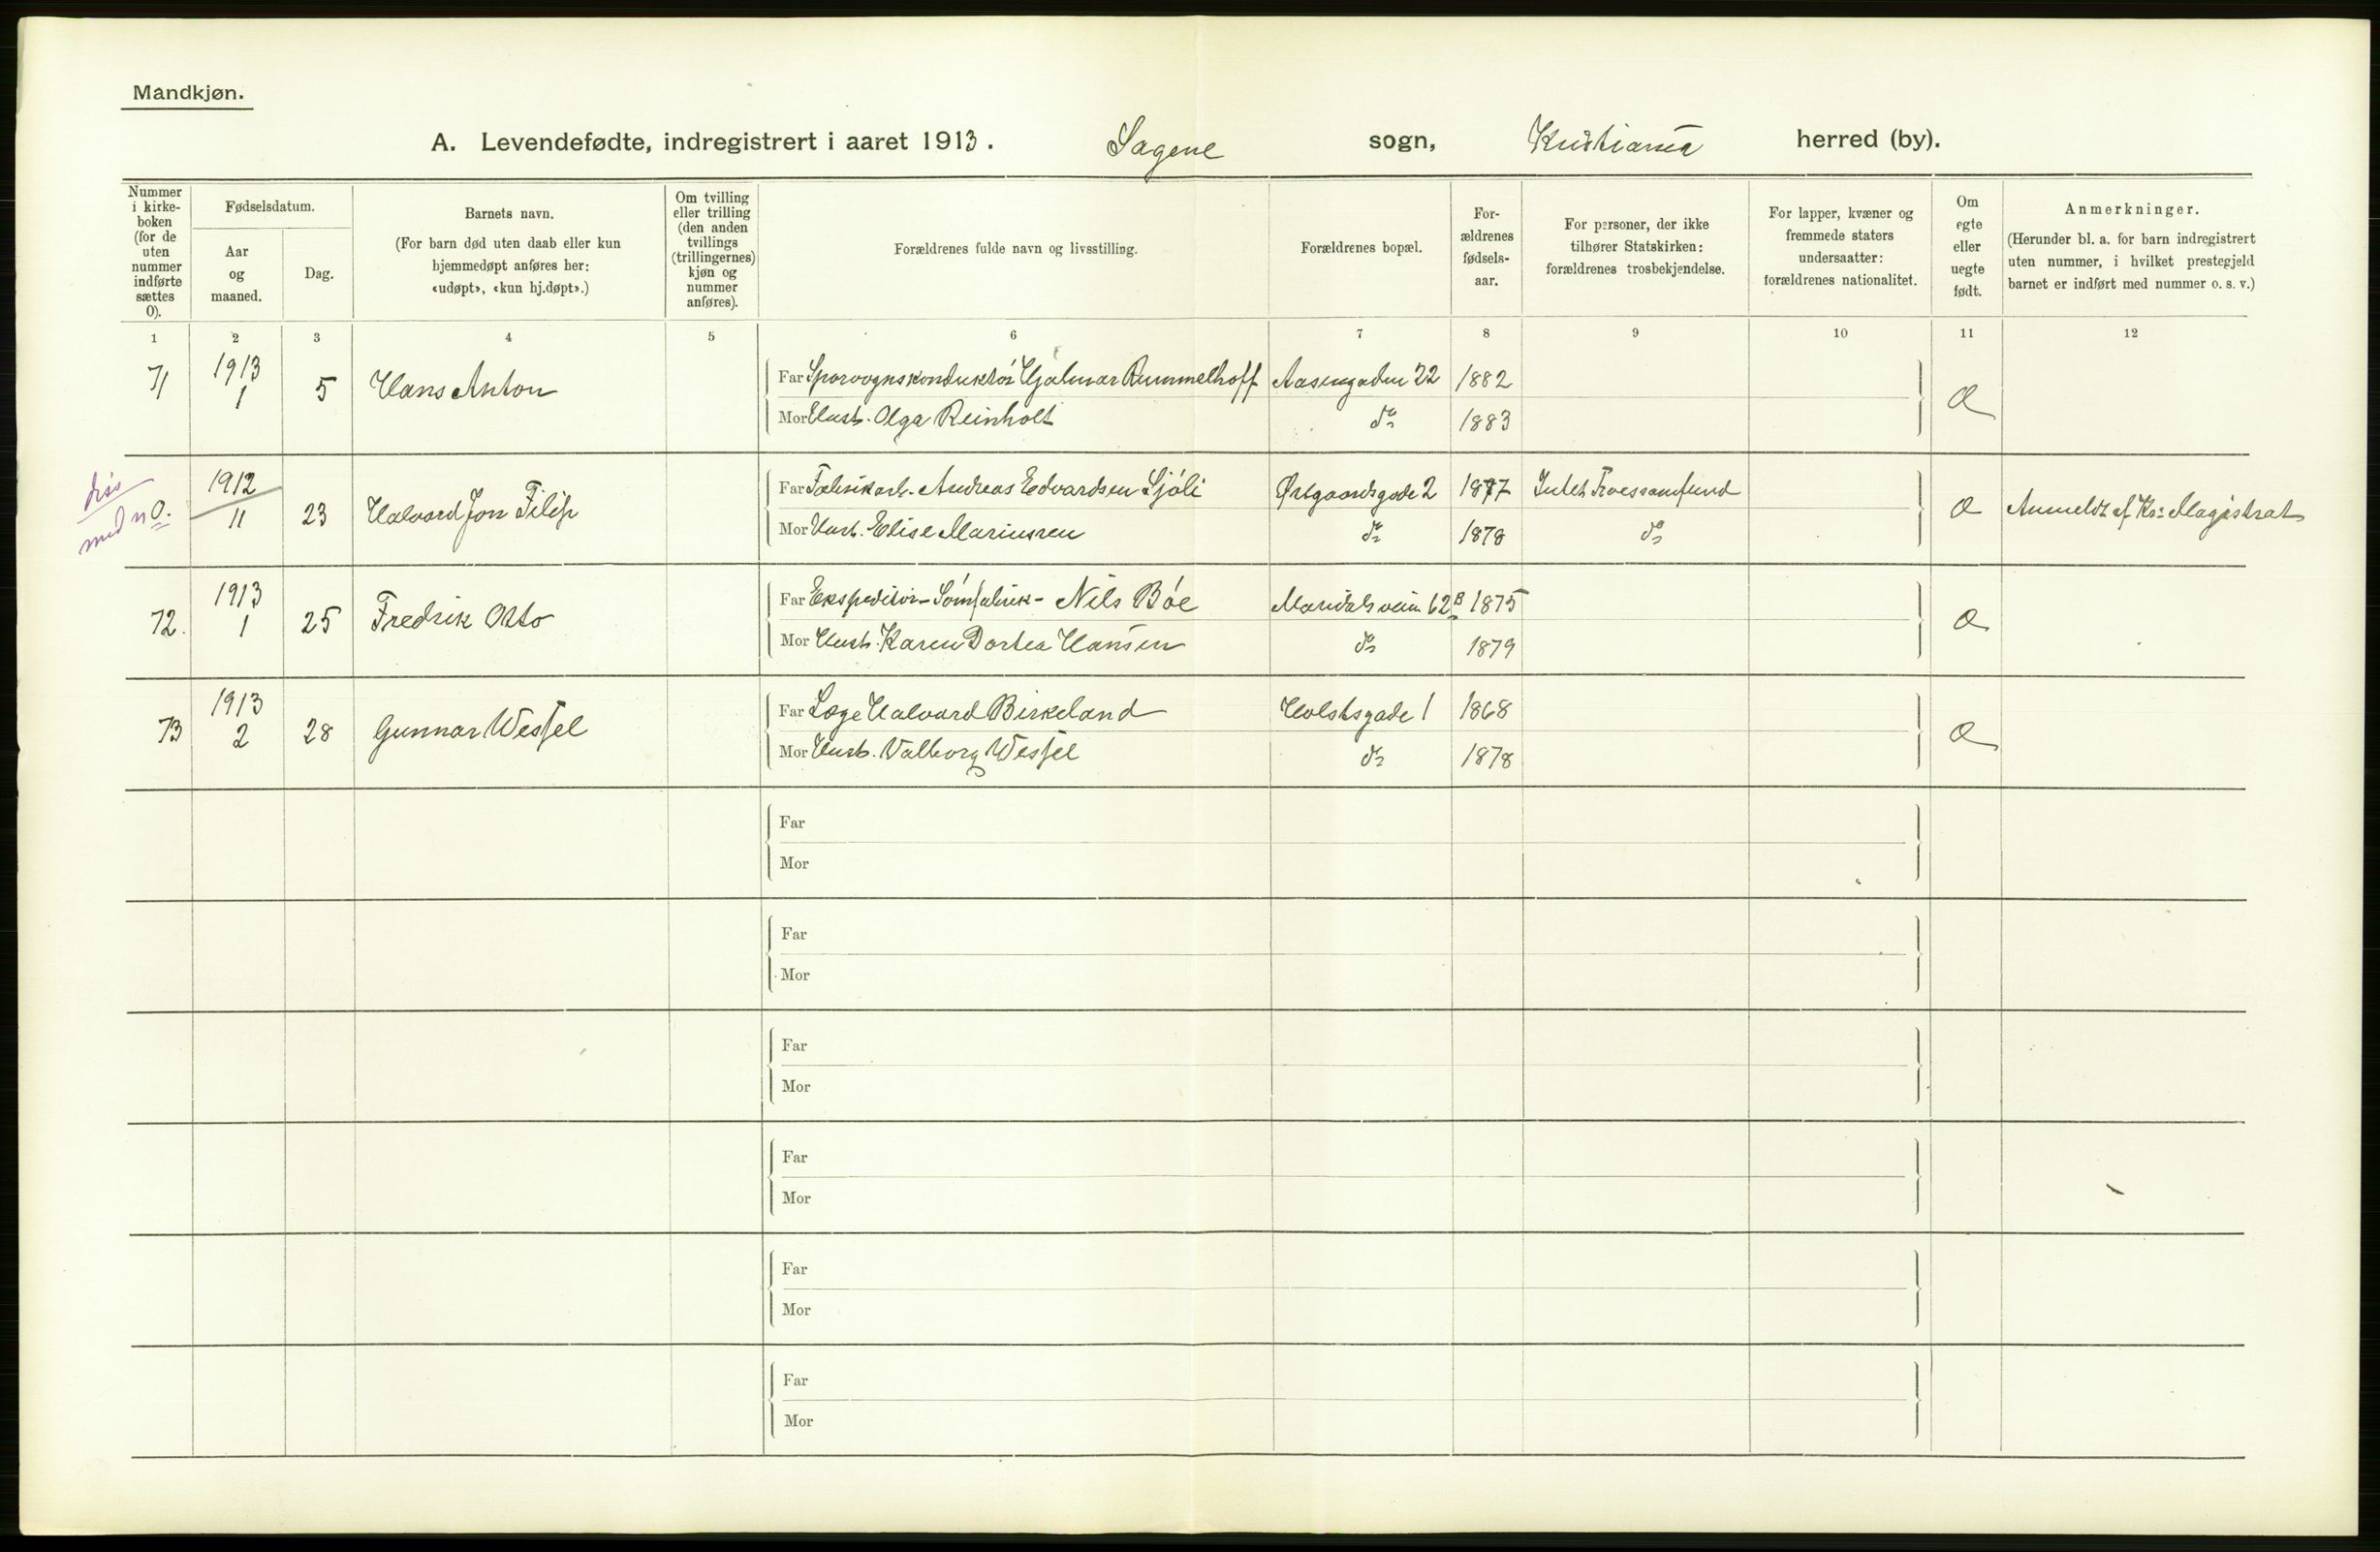 Mandkjøn.
A. Levendefødte, indregistrert i aaret 1913. Sagene sogn, Kristiania herred (by).
Nummer i kirke-boken (for de uten nummer indførte sættes 0).
Fødselsdatum.
Aar og maaned.
Dag.
Barnets navn.
(For barn død uten daab eller kun hjemmedøpt anføres her: «udøpt», «kun hj.døpt».)
Om tvilling eller trilling (den anden tvillings (trillingernes) kjøn og nummer anføres).
Forældrenes fulde navn og livsstilling.
Forældrenes bopæl.
For-ældrenes fødsels-aar.
For personer, der ikke tilhører Statskirken: forældrenes trosbekjendelse.
For lapper, kvæner og fremmede staters undersaatter: forældrenes nationalitet.
Om egte eller uegte født.
Anmerkninger.
(Herunder bl. a. for barn indregistrert uten nummer, i hvilket prestegjeld barnet er indført med nummer o. s. v.)
1 2 3 4 5 6 7 8 9 10 11 12
71 1913 1 5 Hans Anton
Far Sporvognskonduktør Hjalmar Rummelhoff Aasengaden 22 1882
Mor Hust. Olga Reinholt do 1883
diss med n 0. 1912 11 23 Halvard Jon Filip
Far Fabrikarb. Andreas Edvardsen Sjøli 2 1877 Intet Troessamfund
Mor Hust. Elise Mariussen do 1878 do
Anmeldt af Kr: Magistrat
72. 1913 1 25 Fredrik Otto
Far Ekspeditør - Sømfabrik - Nils Bøe Maridalsveien 62B 1875
Mor Hust. Karen Dortea Hansen do 1879
73 1913 2 28 Gunnar Wessel
Far Læge Halvard Birkeland Holstsgade 1 1868
Mor Hust. Valborg Wessel do 1878
Far
Mor
Far
Mor
Far
Mor
Far
Mor
Far
Mor
Far
Mor